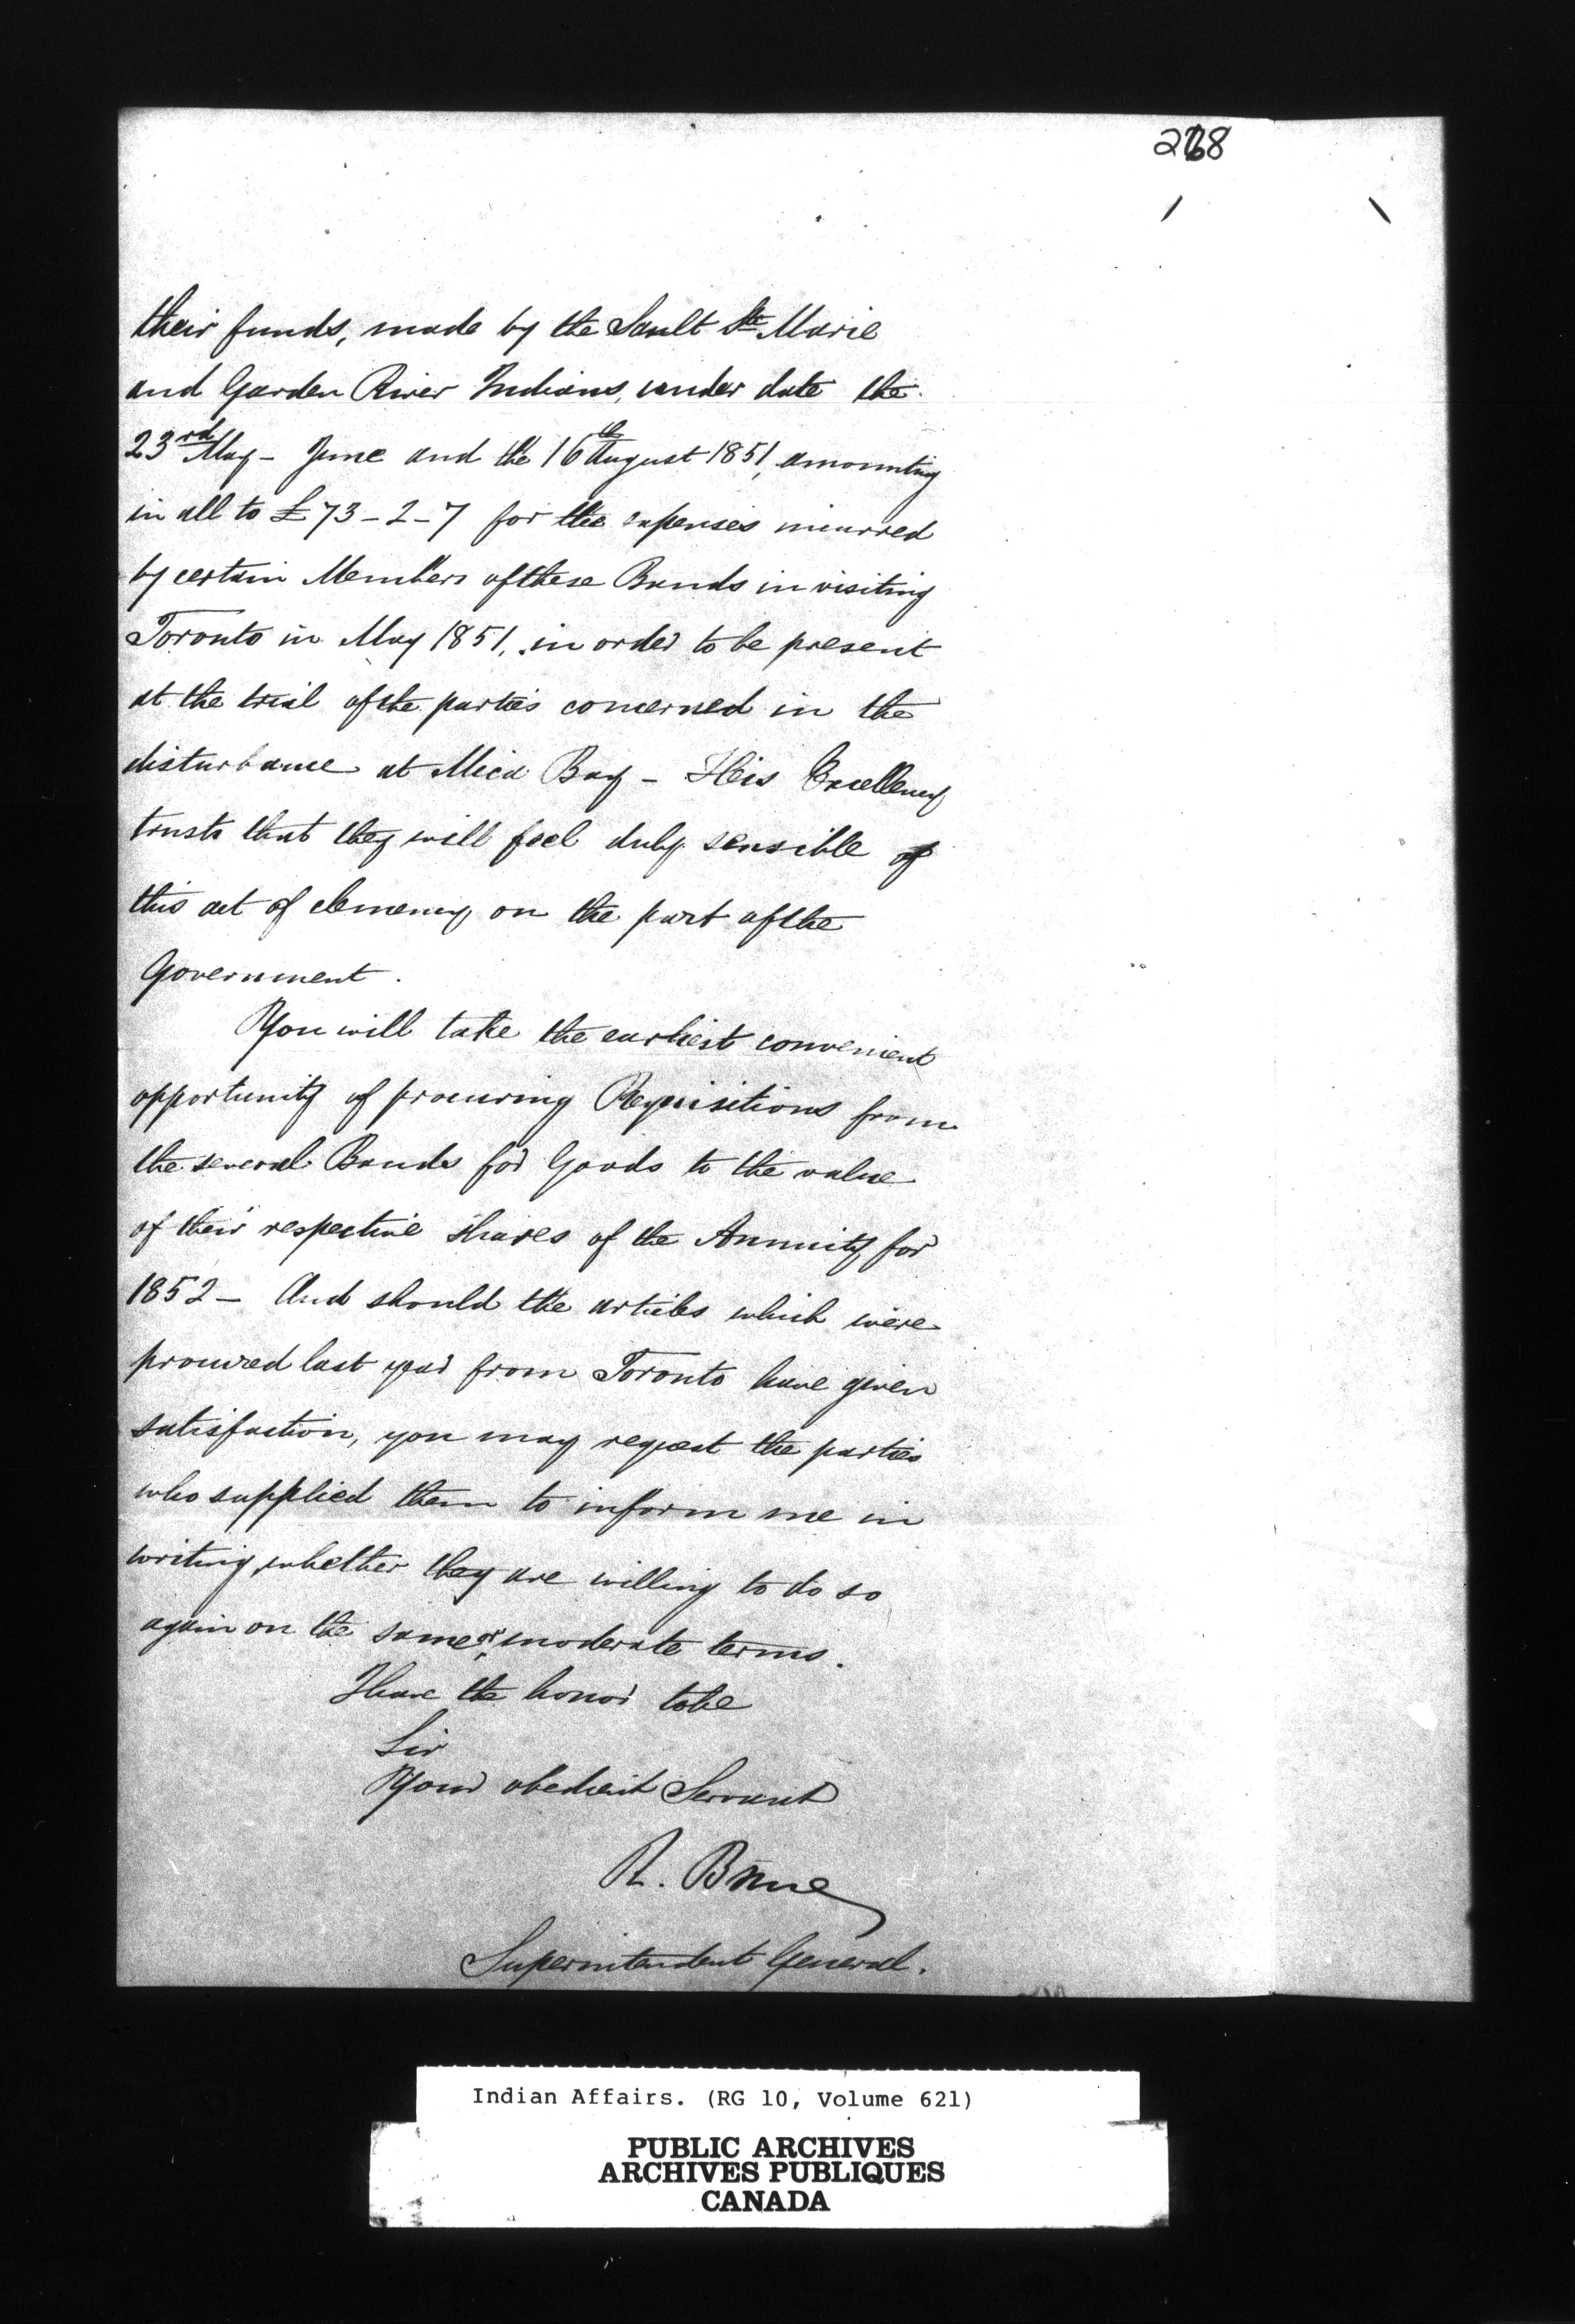 268
their funds, made by the Sault Ste Marie
and Garden River Indians, under date the
23rd May - June and the 16th August 1851, amounting
in all to £73-2-7 for the expenses incurred
by certain Members of these Bands in visiting
Toronto in May 1851, in order to be present
at the trial of the parties concerned in the
disturbance at Mica Bay - His Excellency
trusts that they will feel duly sensible of
this act of clemency on the part of the
Government.
You will take the earliest convenient
opportunity of procuring Requisitions from
the several Bands for Goods to the value
of their respective shares of the Annuity for
1852 - And should the articles which were
procured last year from Toronto have given
satisfaction, you may request the parties
who supplied them to inform me in
writing, whether they are willing to do so
again on the same or moderate terms.
I have the honor to be
Sir
Your obedient Servant
R. Bruce
Superintendent General.
Indian Affairs. (RG 10, Volume 621)
PUBLIC ARCHIVES
ARCHIVES PUBLIQUES
CANADA